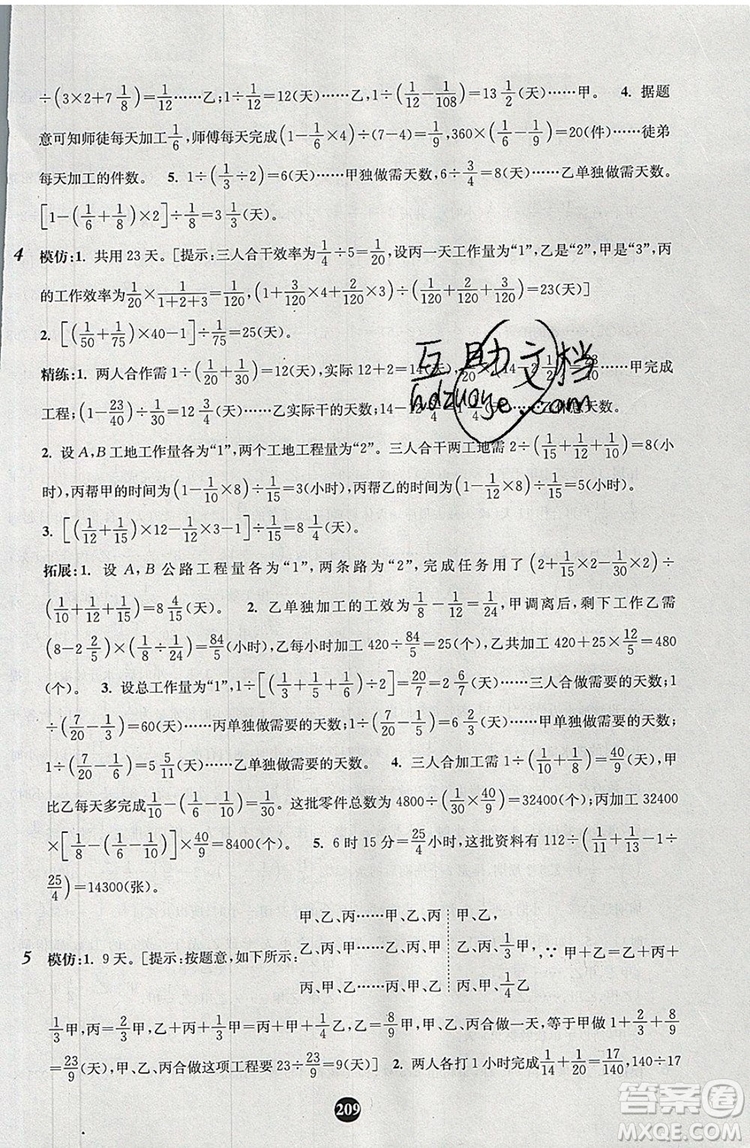 ÷(3×2+7 1/8)=1/12……乙;1÷1/12=12(天),1÷(1/12-1/108)=13 1/2(天)……甲。 4. 据题
意可知师徒每天加工1/6,师傅每天完成(1-1/6×4)÷(7-4)=1/9,360×(1/6-1/9)=20(件)……徒弟
每天加工的件数。 5. 1÷(1/3÷2)=6(天)……甲独做需天数,6÷3/4=8(天)……乙单独做需天数。
[1-(1/6+1/8)×2]÷1/8=3 1/3(天)。
4 模仿:1. 共用 23 天。[提示:三人合干效率为1/4÷5=1/20,设丙一天工作量为“1”,乙是“2”,甲是“3”,丙
的工作效率为1/20×1/(1+2+3)=1/120,(1/120+3/120)×2+3/120+(1-1/3-1/4)÷1/120=23(天)]
2. [(1/50+1/75)×40-1]÷1/75=25(天)。
精练:1. 两人合作需 1÷(1/20+1/30)=12(天),实际 12+2=14(天),
×(14-2 1/2)=23/40……甲完成
工程;(1-23/40)÷1/30=12 3/4(天)……乙实际干的天数;14-12 3/4=1 1/4(天)……乙休息天数。
2. 设 A,B 工地工作量各为“1”,两个工地工程量为“2”。三人合干两工地需 2÷(1/15+1/12+1/10)=8(小
时),丙帮甲的时间为(1-1/10×8)÷1/15=3(小时),丙帮乙的时间为(1-1/12×8)÷1/15=5(小时)。
3. [(1/12+1/15)×12-1/12×3-1]÷1/15=8 1/4(天)。
拓展:1. 设 A,B 公路工程量各为“1”,两条路为“2”,完成任务用了(2+1/15×2-1/30)
÷(1/10+1/12+1/15)=8 2/5(天)。 2. 乙单独加工的工效为1/8-1/12=1/24,甲调离后,剩下工作乙需
(8-2 2/5)×(1/8÷1/24)=84/5(小时),乙每小时加工 420÷84/5=25(个),乙共加工 420+25×12/5=480
(个)。 3. 设总工作量为“1”,1÷[(1/3+1/5+1/6)÷2]=20/7=2 6/7(天)……三人合做需要的天数;1
÷(7/20-1/3)=60(天)……丙单独做需要的天数;1÷(7/20-1/5)=6 2/3(天)……甲单独做需要的天数,
1÷(7/20-1/6)=5 5/11(天)……乙单独做需要的天数。 4. 三人合加工需 1÷(1/8+1/10)=40/9(天),甲
比乙每天多完成1/10-(1/6-1/10)=1/30。这批零件总数为 4800÷(1/30×40/9)=32400(个);丙加工 32400
×[1/8-(1/6-1/10)]×40/9=8400(个)。 5. 6 时 15 分=25/4小时,这批资料有 112÷(1/11+1/13-1÷
25/4)=14300(张)。
5 模仿:1. 9 天。[提示:按题意,如下所示:
甲、乙、丙……甲、乙、丙 甲、乙,
乙、丙、甲……乙、丙、甲 乙、丙、1/3甲,
丙、甲、乙……丙、甲、乙 丙、甲、1/4乙
,∵ 甲+乙=乙+丙+
1/3甲,丙=2/3甲,甲+乙=丙+甲+1/4乙,乙=8/9甲,甲、乙、丙合做一天,等于甲做 1+2/3+8/9
=23/9(天),甲、乙、丙合做这项工程要 23÷23/9=9(天)] 2. 两人各打 1 小时打完1/17×2,140÷17
209
互助文档
hdzuoye.com
答案圈
MXQE.COM